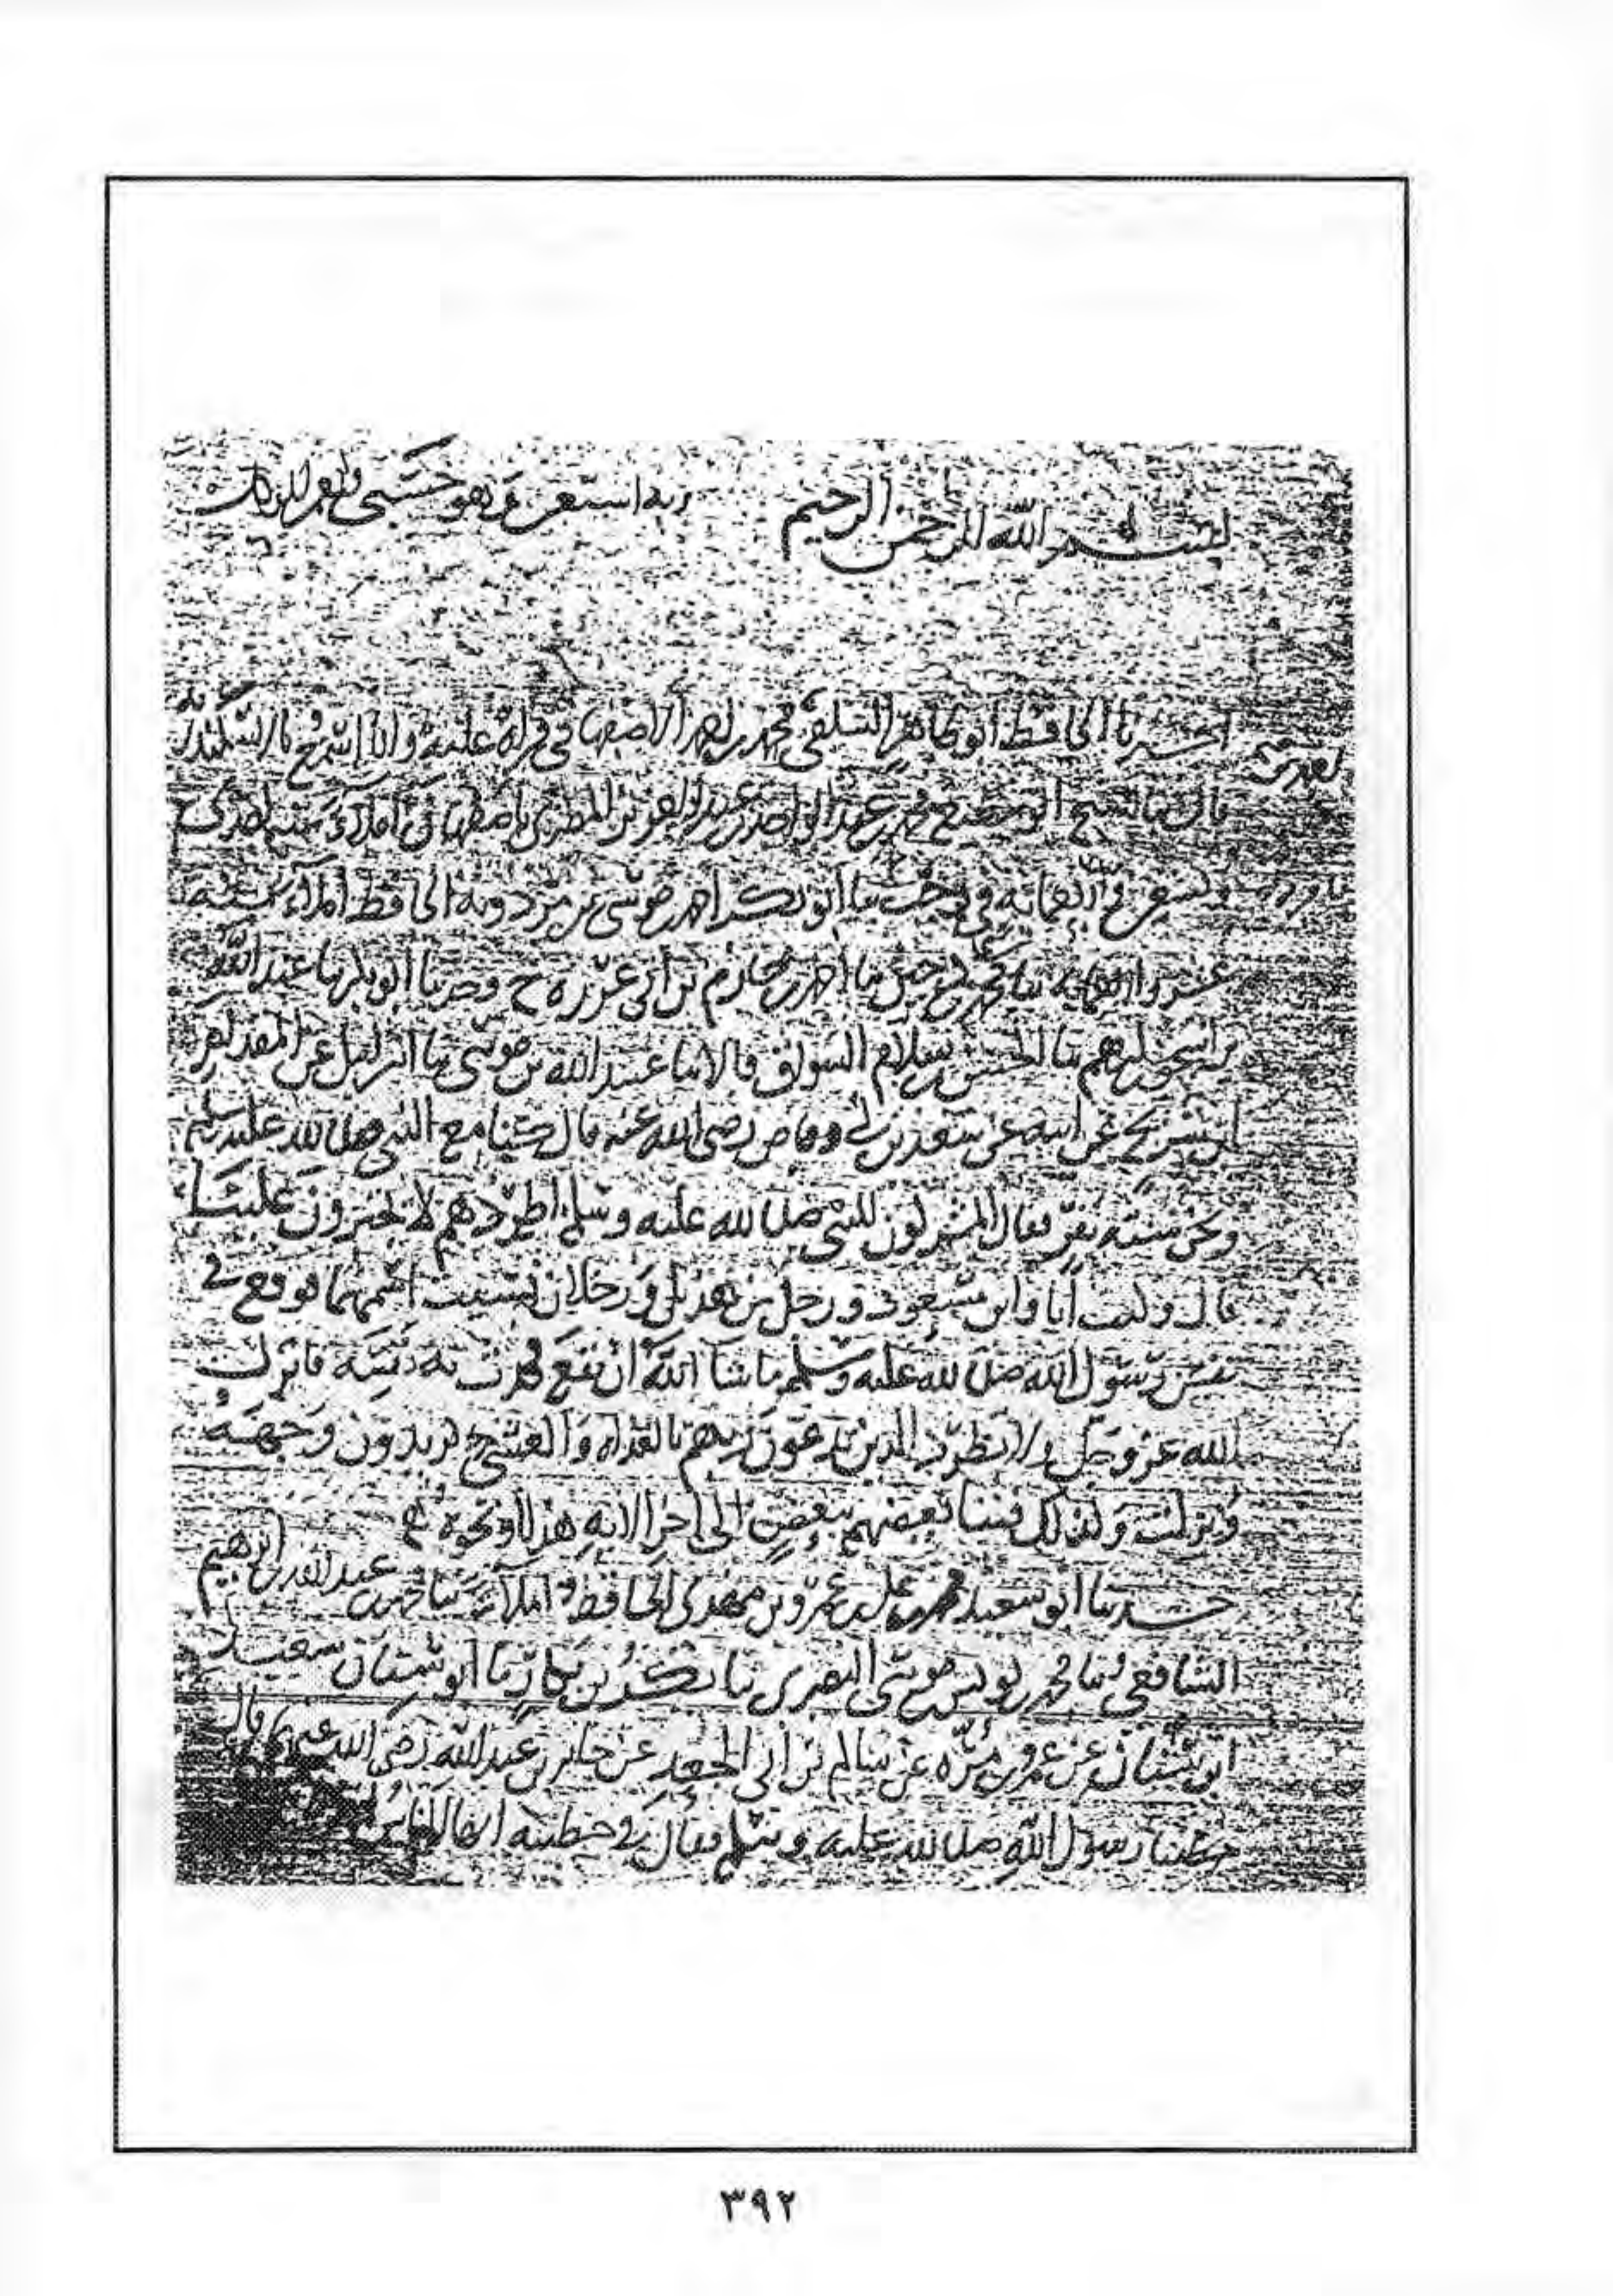 بسم الله الرحمن الرحيم وبه استعين وهو حسبي ونعم الوكيل
الحافظ أبو طاهر السلفي الاصبهاني قراة عليه وانا اسمع
قال ثنا الشيخ ابو مطيع محمد بن عبد الواحد بن عبد العزيز المصري باصبهان املاء
ثنا أبو بكر احمد بن موسى بن مردويه الحافظ املاء سنة
ثنا محمد بن ثنا احمد بن حازم بن أبي غرزة ح وحدثنا أبو بكر ثنا عبد الله
بن ابرهيم ثنا الحسن بن سلام السواق قالا ثنا عبيد الله بن موسى ثنا اسرايل عن المقدام
ابن شريح عن ابيه عن سعد بن ابي وقاص رضي الله عنه قال كنا مع النبي صلى الله عليه وسلم
ونحن ستة نفر فقال المشركون للنبي صلى الله عليه وسلم اطرد هم لا يجترون علينا
قال وكنت أنا وابن مسعود ورجل من هذيل ورجلان نسيت اسمهما فوقع في
نفس رسول الله صلى الله عليه وسلم ما شا الله أن يقع فحدث به نفسه فانزل
الله عز وجل ولا تطرد الذين يدعون ربهم بالغداة والعشي يريدون وجهه
ونزلت وكذلك فتنا بعضهم ببعض الى اخر الاية هذا أو نحوه
حدثنا أبو سعيد محمد بن علي بن عمرو بن مهدي الحافظ املاء ثنا محمد بن عبد الله بن ابرهيم
الشافعي ثنا محمد بن يونس بن موسى البصري ثنا بكر بن بكار ثنا أبو سنان سعيد بن
ابو سنان عن عمرو بن مرة عن سالم بن أبي الجعد عن جابر بن عبد الله رضي الله عنهما قال
خطبنا رسول الله صلى الله عليه وسلم فقال في خطبته ايها الناس
٣٩٢